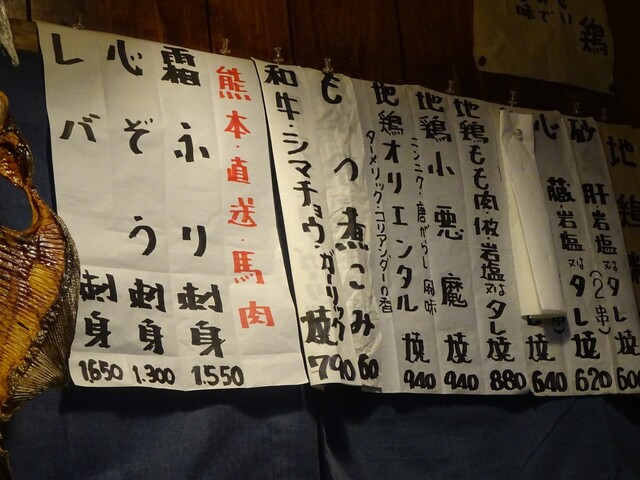 鶏
地鶏
600
砂肝岩塩又はタレ(2串)焼
620
心臓・岩塩又はタレ焼
640
地鶏もも肉・岩塩又はタレ焼
880
地鶏小悪魔焼
ニンニク・唐がらし風味
940
地鶏オリエンタル焼
ターメリック・コリアンダーの香
940
もつ煮こみ
60
和牛・シマチョウ・ガーリック焼
790
熊本・直送・馬肉
霜ふり刺身
1.550
心ぞう刺身
1.300
レバ刺身
1,650